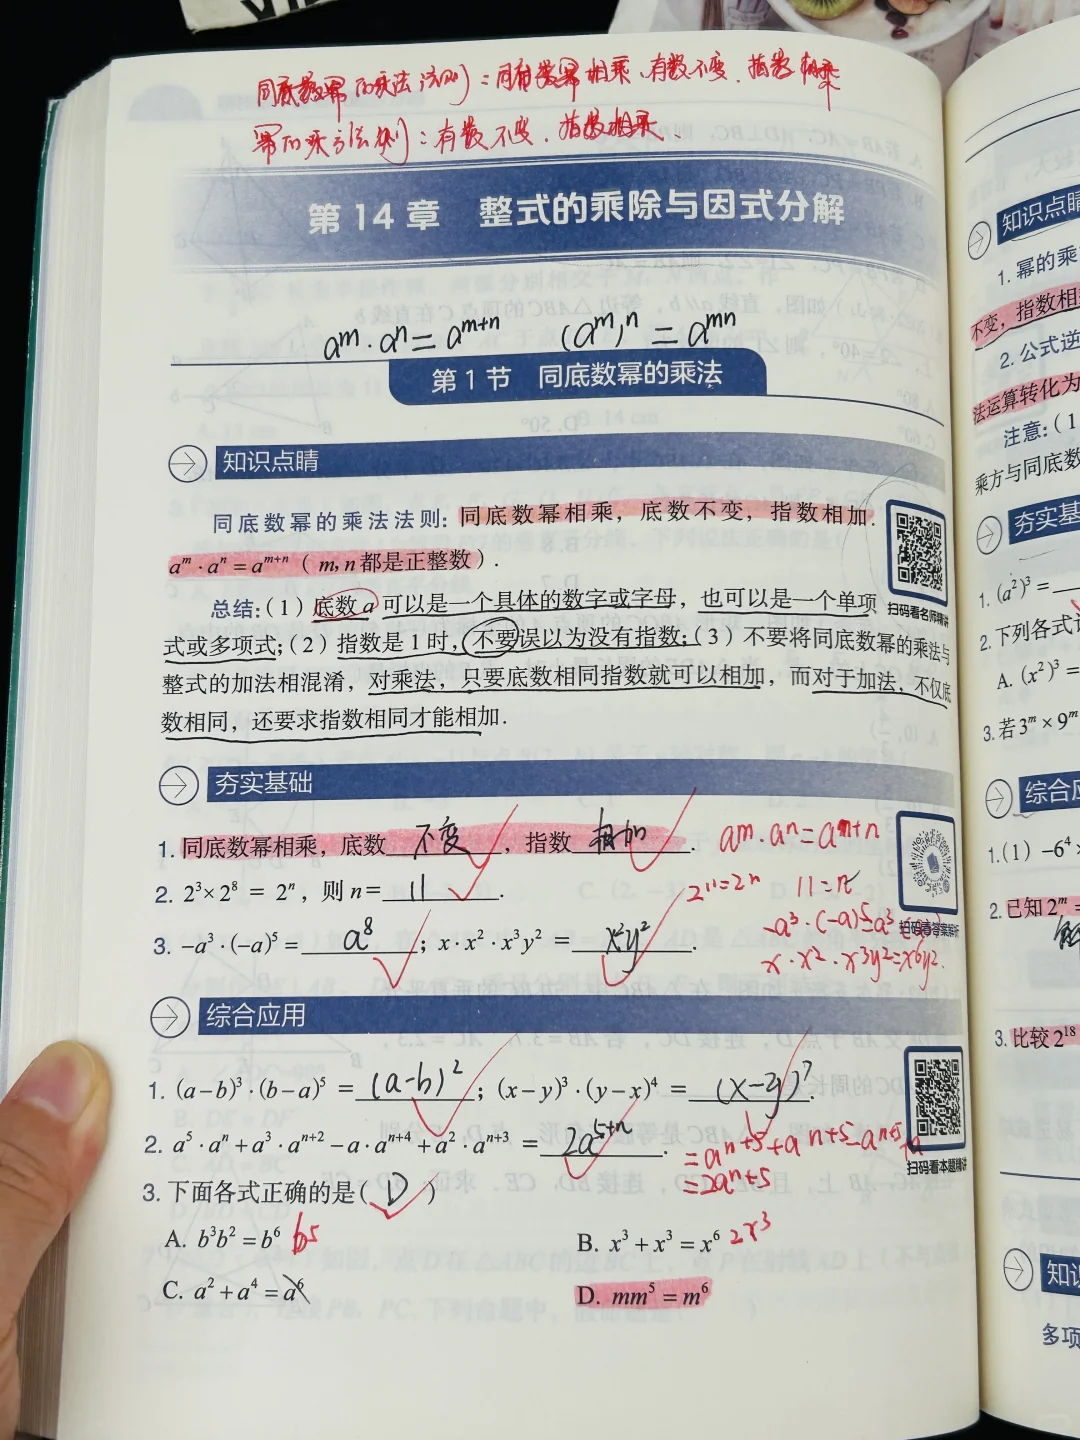 同底数幂的乘法法则：同底数幂相乘，底数不变，指数相乘
幂的乘方法则：底数不变，指数相乘.
第14章 整式的乘除与因式分解
aᵐ·aⁿ=aᵐ⁺ⁿ (aᵐ)ⁿ=aᵐⁿ
第1节 同底数幂的乘法
知识点睛
同底数幂的乘法法则: 同底数幂相乘，底数不变，指数相加.
aᵐ·aⁿ=aᵐ⁺ⁿ（m,n都是正整数）.
扫码看名师精讲
总结:(1)底数a可以是一个具体的数字或字母，也可以是一个单项
式或多项式;(2)指数是1时,不要误以为没有指数;(3)不要将同底数幂的乘法与
整式的加法相混淆，对乘法，只要底数相同指数就可以相加，而对于加法,不仅底
数相同，还要求指数相同才能相加.
夯实基础
1. 同底数幂相乘，底数 不变 ，指数 相加 . aᵐ·aⁿ=aᵐ⁺ⁿ
2. 2³×2⁸=2ⁿ，则n= 11 . 2¹¹=2ⁿ 11=n
3. -a³·(-a)⁵= a⁸ ; x·x²·x³y²= x⁶y² .
x·x²·x³y²=x⁶y².
综合应用
1. (a-b)³·(b-a)⁵= (a-b)² ; (x-y)³·(y-x)⁴= (x-y)⁷ .
2. a⁵·aⁿ+a³·aⁿ⁺²-a·aⁿ⁺⁴+a²·aⁿ⁺³= 2a⁵⁺ⁿ .
=aⁿ⁺⁵+aⁿ⁺⁵-aⁿ⁺⁵
=2aⁿ⁺⁵
扫码看本题精讲
3. 下面各式正确的是( D )
A. b³b²=b⁶ b⁵
B. x³+x³=x⁶ 2x³
C. a²+a⁴=a⁶
D. mm⁵=m⁶
知识点睛
1. 幂的乘
不变，指数相
2. 公式逆
法运算转化为
注意:(1
乘方与同底数
夯实基
1. (a²)³=
2. 下列各式
A. (x²)³=
3. 若3ᵐ×9ᵐ
综合应
1.(1) -6⁴×
2. 已知2ᵐ=
解
3. 比较2¹⁸
知识
多项